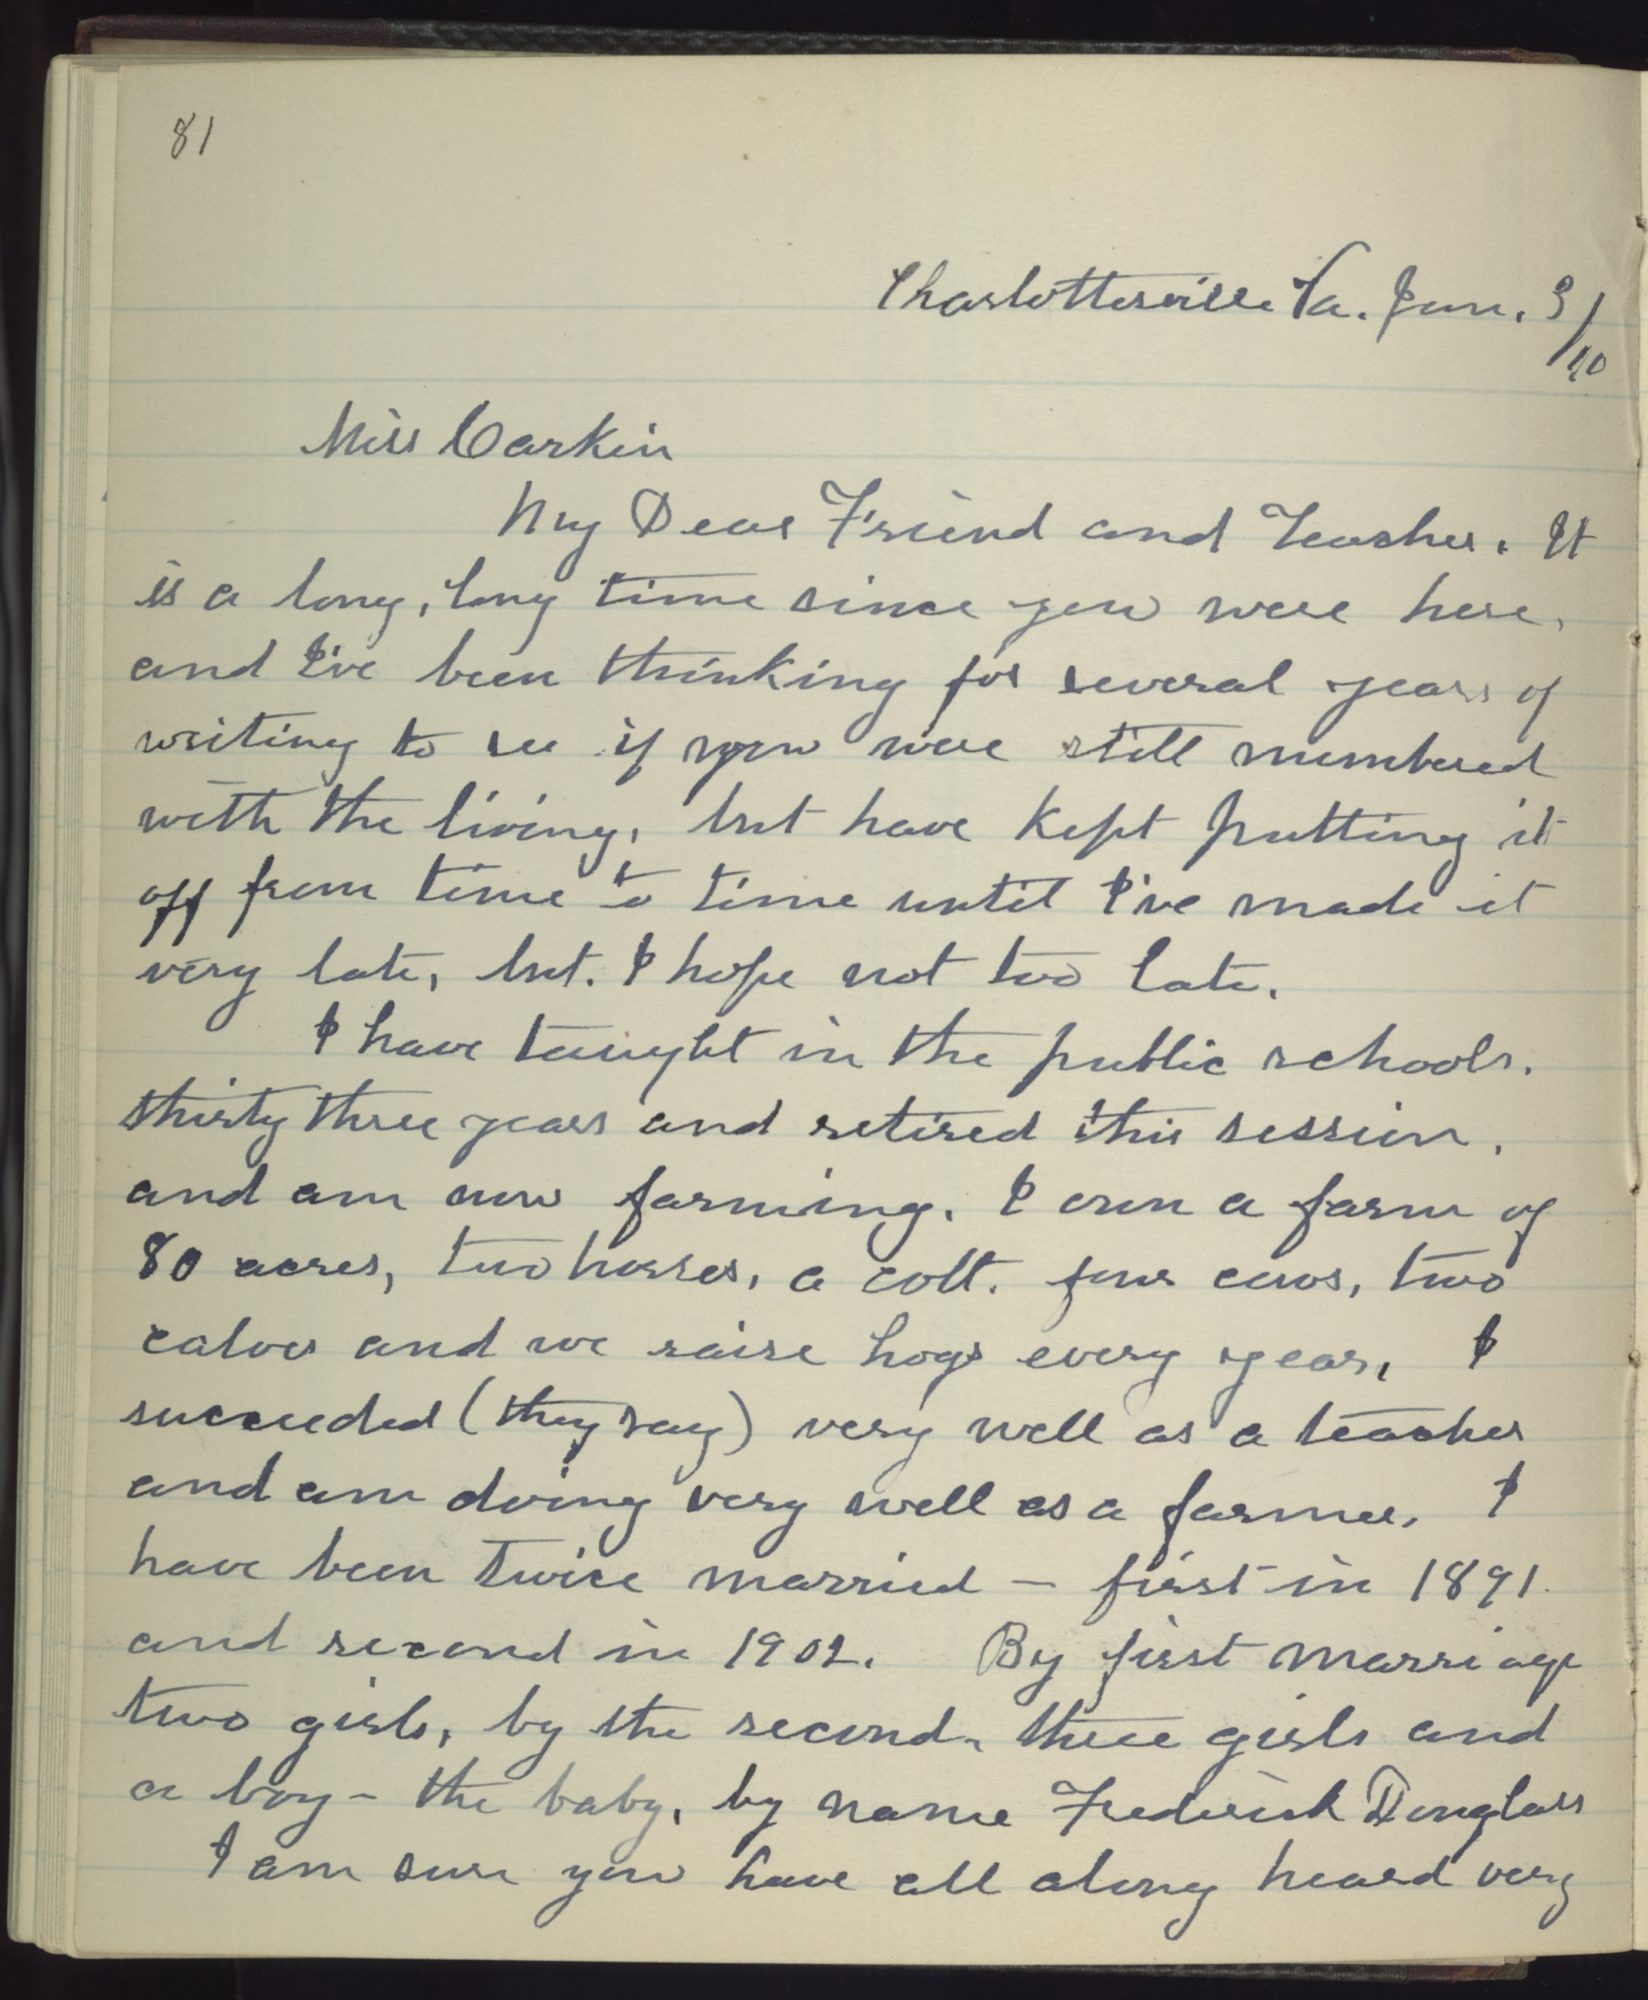 81
Charlottesville Va. Jan. 3/10
Miss Carkin
My Dear Friend and Teacher. It
is a long, long time since you were here,
and I've been thinking for several years of
writing to see if you were still numbered
with the living, but have kept putting it
off from time to time until I've made it
very late, but. I hope not too late.
I have taught in the public schools.
thirty three years and retired this session,
and am now farming. I own a farm of
80 acres, two horses, a colt. four cows, two
calves and we raise hogs every year, I
succeeded (they say) very well as a teacher
and am doing very well as a farmer. I
have been twice married - first in 1891.
and second in 1902. By first marriage
two girls, by the second, three girls and
a boy - the baby, by name Frederick Douglass
I am sure you have all along heard very